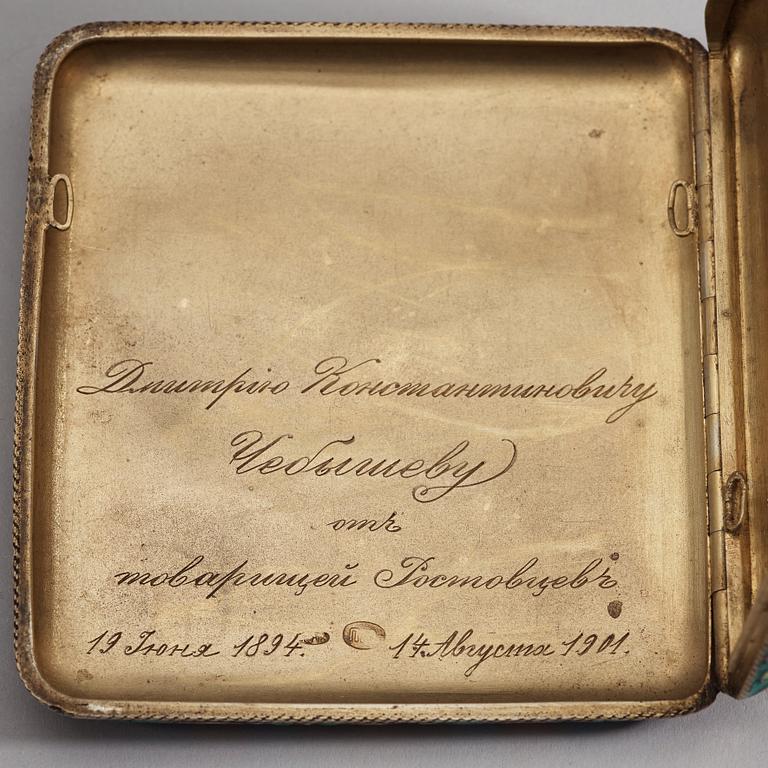 Дмитрію Константиновичу
Чебышеву
отъ
товарищей Ростовцевъ
19 Іюня 1894. 14 Августа 1901.